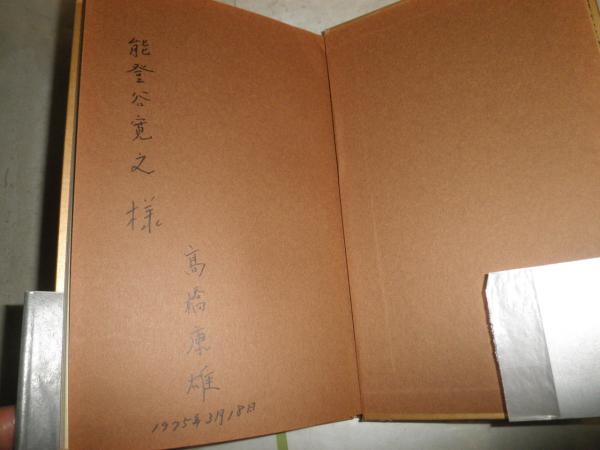 能登谷寛之様
高橋康雄
1975年3月18日